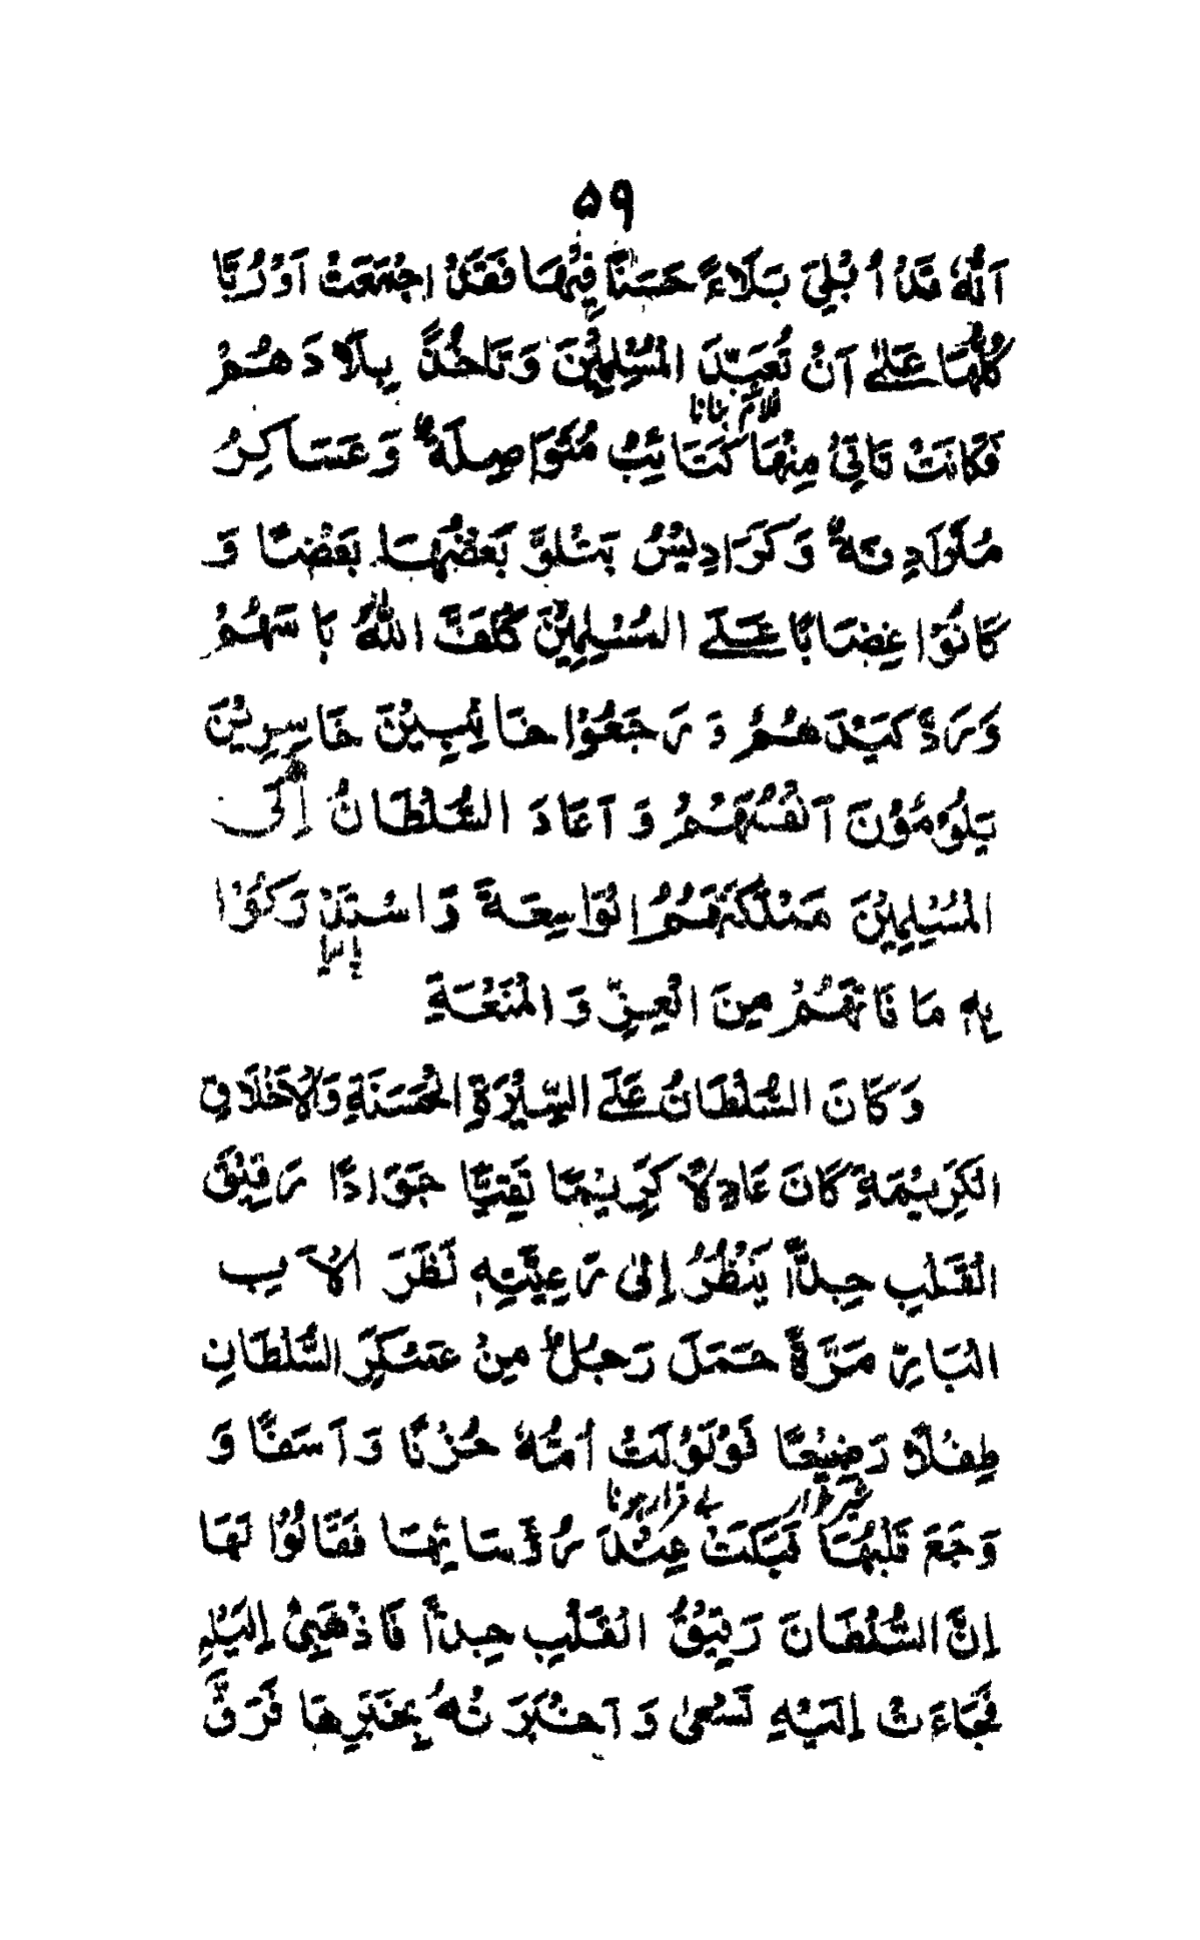 ۵۹
اَنَّهٗ قَدْ اُبْلِيَ بَلَاءً حَسَنًا فِيْهَا فَقَدْ اجْتَمَعَتْ اَوْرُبَّا
كُلُّهَا عَلٰى اَنْ تُعَبِّدَ الْمُسْلِمِيْنَ وَتَاخُذَ بِلَادَهُمْ
غلام بنانا
فَكَانَتْ تَاتِيْ مِنْهَا كَتَائِبُ مُتَوَاصِلَةٌ وَعَسَاكِرُ
مُتَرَادِفَةٌ وَكَرَادِيْسُ يَتْلُوْ بَعْضُهَا بَعْضًا وَ
كَانُوْا غِضَابًا عَلَى الْمُسْلِمِيْنَ فَكَفَّ اللّٰهُ بَاسَهُمْ
وَرَدَّ كَيْدَهُمْ وَرَجَعُوْا خَائِبِيْنَ خَاسِرِيْنَ
يَلُوْمُوْنَ اَنْفُسَهُمْ وَاَعَادَ السُّلْطَانُ اِلَى
الْمُسْلِمِيْنَ مَمْلَكَتَهُمُ الْوَاسِعَةَ وَاسْتَدْرَكُوْا
پا لیا
بِهٖ مَا فَاتَهُمْ مِنَ الْعِزِّ وَالْمَنَعَةِ
وَكَانَ السُّلْطَانُ عَلَى السِّيْرَةِ الْحَسَنَةِ وَالْاَخْلَاقِ
الْكَرِيْمَةِ كَانَ عَادِلًا كَرِيْمًا تَقِيًّا جَوَادًا رَقِيْقَ
الْقَلْبِ جِدًّا يَنْظُرُ اِلٰى رَعِيَّتِهٖ نَظَرَ الْاَبِ
الْبَارِّ مَرَّةً حَمَلَ رَجُلٌ مِنْ عَسْكَرِ السُّلْطَانِ
طِفْلًا رَضِيْعًا فَوَلْوَلَتْ اُمُّهٗ حُزْنًا وَاَسَفًا وَ
شیر خوار بے قرار ہونا
وَجَعَ قَلْبُهَا فَبَكَتْ عِنْدَ رُؤَسَائِهَا فَقَالُوْا لَهَا
اِنَّ السُّلْطَانَ رَقِيْقُ الْقَلْبِ جِدًّا فَاذْهَبِيْ اِلَيْهِ
فَجَاءَتْ اِلَيْهِ تَسْعٰى وَاَخْبَرَتْهُ بِخَبَرِهَا فَرَقَّ